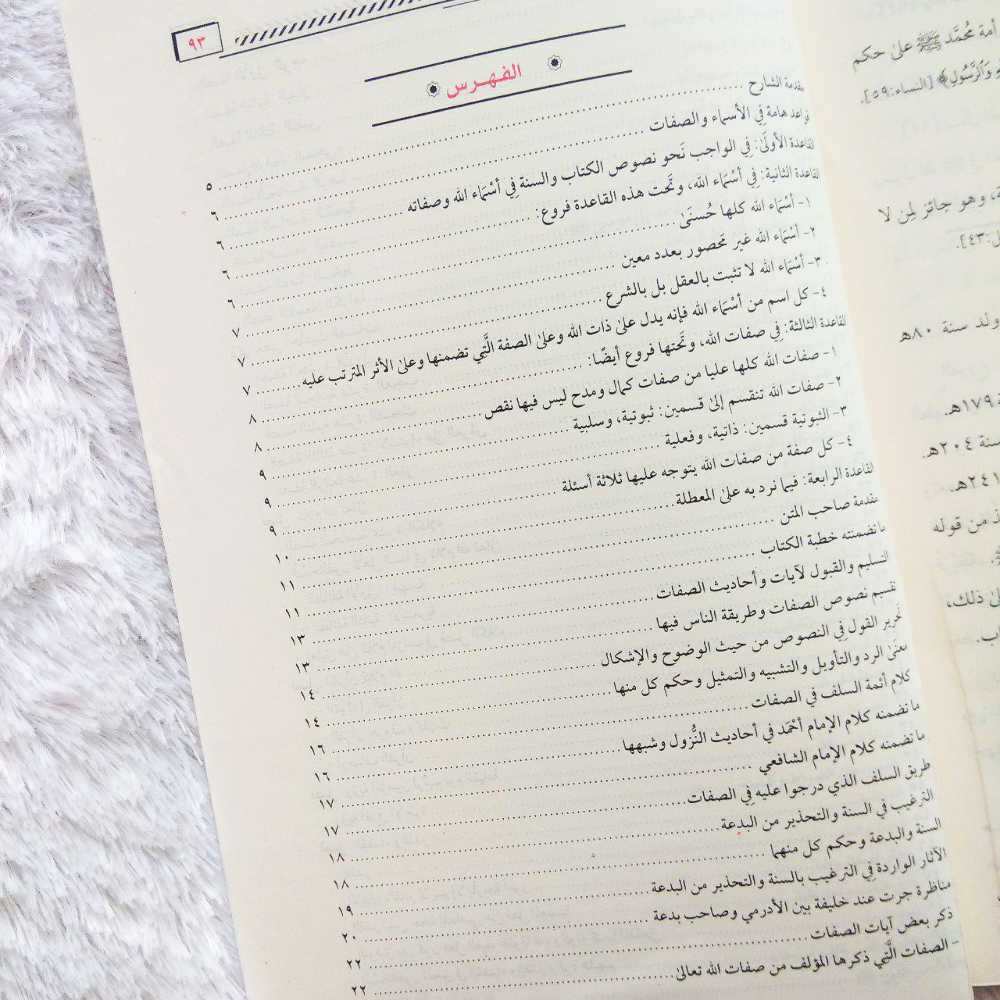 ٩٣
الفهرس
مقدمة الشارح ... ٥
قواعد هامة فِي الأسماء والصفات ... ٦
القاعدة الأولَى: فِي الواجب نَحو نصوص الكتاب والسنة فِي أسْمَاء الله وصفاته ... ٦
القاعدة الثانية: فِي أسْمَاء الله، وتَحت هذه القاعدة فروع: ... ٦
١- أسْمَاء الله كلها حُسنَىٰ ... ٦
٢- أسْمَاء الله غير مَحصور بعدد معين ... ٧
٣- أسْمَاء الله لا تثبت بالعقل بل بالشرع ... ٧
٤- كل اسم من أسْمَاء الله فإنه يدل علىٰ ذات الله وعلىٰ الصفة الَّتِي تضمنها وعلىٰ الأثر المترتب عليه ... ٧
القاعدة الثالثة: فِي صفات الله، وتَحتها فروع أيضًا: ... ٨
١- صفات الله كلها عليا من صفات كمال ومدح ليس فيها نقص ... ٨
٢- صفات الله تنقسم إلىٰ قسمين: ثبوتية، وسلبية ... ٩
٣- الثبوتية قسمين: ذاتية، وفعلية ... ٩
٤- كل صفة من صفات الله يتوجه عليها ثلاثة أسئلة ... ٩
القاعدة الرابعة: فيما نرد به علىٰ المعطلة ... ١٠
مقدمة صاحب المتن ... ١١
ما تضمنته خطبة الكتاب ... ١١
التسليم والقبول لآيات وأحاديث الصفات ... ١٣
تقسيم نصوص الصفات وطريقة الناس فيها ... ١٣
تَحرير القول فِي النصوص من حيث الوضوح والإشكال ... ١٤
معنَىٰ الرد والتأويل والتشبيه والتمثيل وحكم كل منها ... ١٤
كلام أئمة السلف فِي الصفات ... ١٦
ما تضمنه كلام الإمام أحْمَد فِي أحاديث النُّزول وشبهها ... ١٦
ما تضمنه كلام الإمام الشافعي ... ١٧
طريق السلف الذي درجوا عليه فِي الصفات ... ١٧
الترغيب فِي السنة والتحذير من البدعة ... ١٨
السنة والبدعة وحكم كل منهما ... ١٨
الآثار الواردة فِي الترغيب بالسنة والتحذير من البدعة ... ١٩
مناظرة جرت عند خليفة بين الأدرمي وصاحب بدعة ... ٢٠
ذكر بعض آيات الصفات ... ٢٢
- الصفات الَّتِي ذكرها المؤلف من صفات الله تعالىٰ ... ٢٢
أمة مُحمَّد ﷺ علىٰ حكم
وَٱلرَّسُولِ﴾ [النساء:٥٩].
، وهو جائز لِمن لا
:٤٣].
ولد سنة ٨٠هـ
١٧٩هـ.
سنة ٢٠٤هـ
٢٤١هـ.
من قوله
ىٰ ذلك،